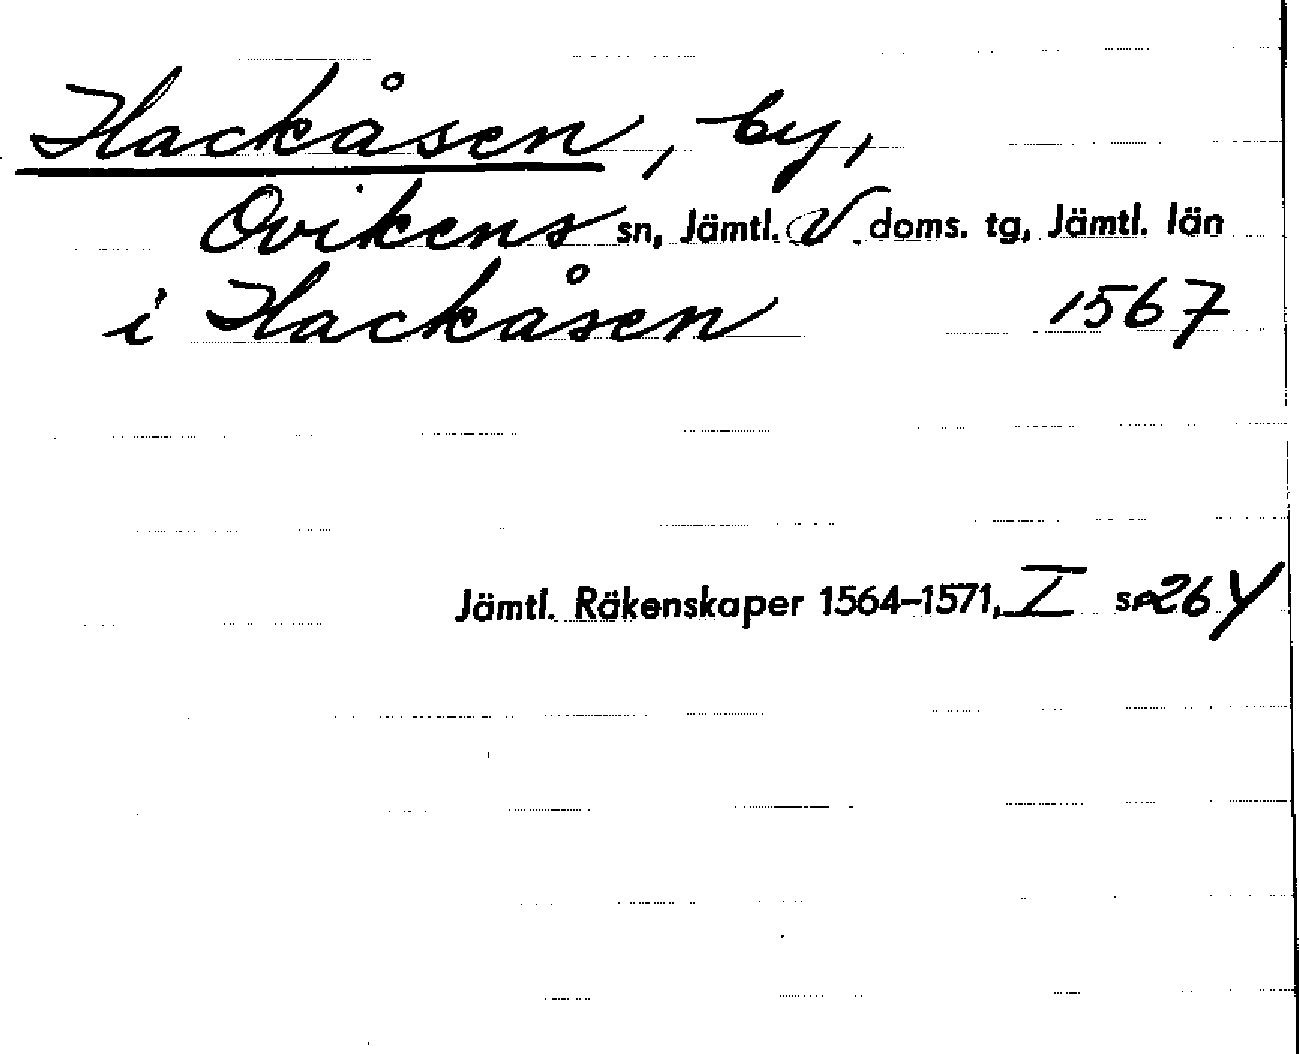 Hackåsen, by,
Ovikens sn, Jämtl. V. doms. tg, Jämtl. län
i Hackåsen 1567
Jämtl. Räkenskaper 1564–1571, I s. 264